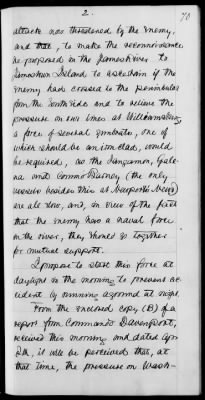 2.
70
attack now threatened by the enemy,
and that, to make the reconnoissance
he proposed in the James river to
Jamestown Island to ascertain if the
enemy had crossed to the peninsular
from the South side and to relieve the
pressure on our lines at Williamsburg,
a force of several gunboats, one of
which should be an ironclad, would
be required, as the Sangamon, Gale-
na and Commo Barney (the only
vessels besides this at Newport News)
are all slow, and, in view of the fact
that the enemy have a naval force
in the river, they should go together
for mutual support.
I propose to start this force at
daylight in the morning to prevent ac-
cident by running aground at night.
From the enclosed copy (B) of a
report from Commander Davenport,
received this morning and dated Apr.
2th, it will be perceived that, at
that time, the pressure on Wash-